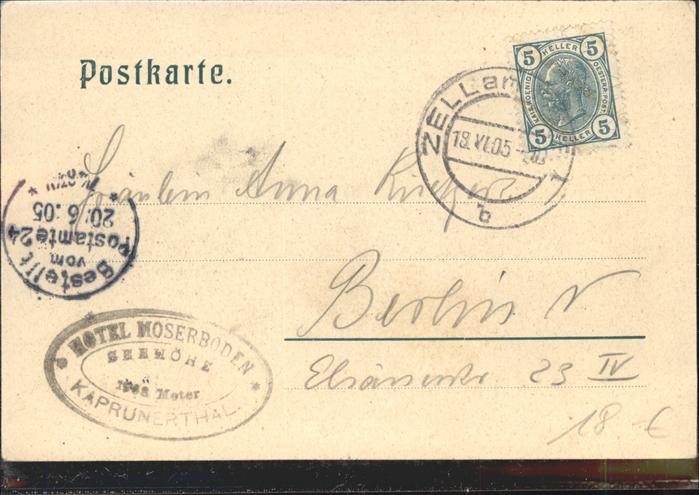 Postkarte.
5 HELLER 5
KAIS. KOENIGL. OESTERR. POST
5 HELLER 5
ZELL am
18.VI.05
b
Fräulein Anna
Bestellt
vom
Postamte 24
20.6.05
Berlin N
23 IV
HOTEL MOSERBODEN
SEEHÖHE
1968 Meter
KAPRUNERTHAL
18 €